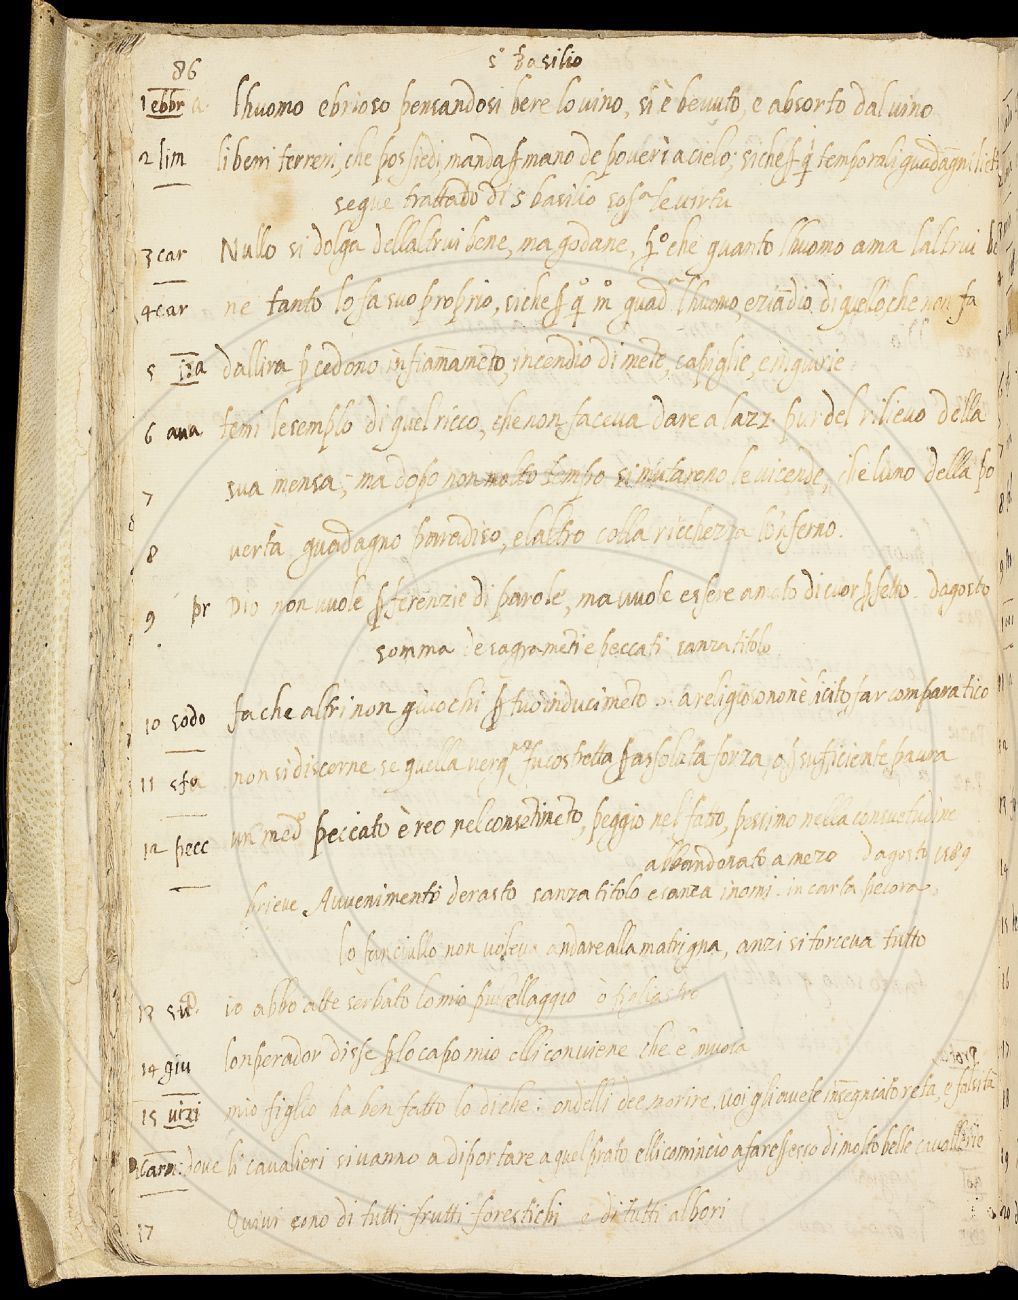 86
s° Basilio
1 ebbr a. lhuomo ebrioso pensandosi bere lo vino, si è bevuto, e absorto dal vino
2 lim li beni terreni, che possiedi, manda p mano de poveri a cielo; siche p q temporali guadagni lieti
segue trattado di s basilio sopa le virtu
3 car Nullo si dolga dellaltrui bene, ma godane, po che quanto lhuomo ama laltrui be
4 car ne tanto lo fa suo proprio, siche p qo mo quad lhuomo, eziadio di quello che non fa
5 ira dallira pcedono infiamameto, incendio di mete, capiglie, e ingiurie
6 aua. temi lesemplo di quel ricco, che non faceva dare a lazz. pur del rilievo della
7 sua mensa; ma dopo non molto tempo si mutareno le vicende, che luno della po
8 vertà guadagno paradiso, e laltro colla ricchezza lonferno.
9 pr Dio non vuole pferenzie di parole, ma vuole essere amato di cuor pfetto. dagosto
somma de sagrameti e peccati sanza titolo
10 sodo fa che altri non giuochi p tuo inducimeto. a religioso non è licito far comparatico
11 sfa non si discerne se quella verg fu costretta p assoluta forza, o p suficiente paura
12 pecc un med peccato è reo nel consetimeto, peggio nel fatto, pessimo nella consuetudine
abbandonato a mezo dagosto 1589
brieve Avvenimenti derasto sanza titolo e sanza inomi. in carta pecora.
lo fanciullo non voleva andare alla matrigna, anzi si torceva tutto
13 io abbo atte serbato lo mio pulcellaggio o figliastro
14 giu lonperador disse plo capo mio elli conviene che e muoia
15 vizi mio figlio ha ben fatto lo diche: ondelli dee morire. voi gli avete insegniato reta, e falsità
Carm: dove li cavalieri si vanno a diportare a quel prato elli comincio a fare spesso di molto belle cavallerie
17 Quivi sono di tutti frutti forestichi e di tutti albori